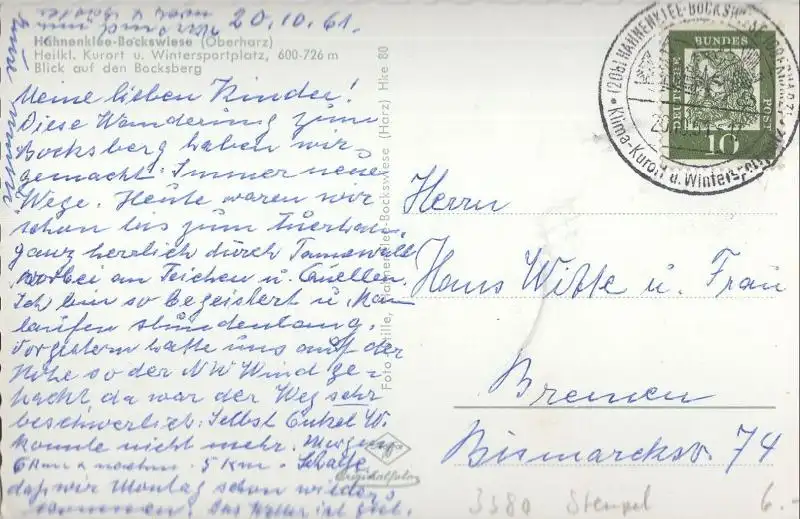 20.10.61.
Hahnenklee-Bockswiese (Oberharz)
Heilkl. Kurort u. Wintersportplatz, 600-726 m
Blick auf den Bocksberg
Meine lieben Kinder!
Diese Wanderung zum
Bocksberg haben wir
gemacht. Immer neue
Wege. Heute waren wir
schon bis zum
ganz herrlich durch Tannenwald
vorbei an Teichen u. Quellen.
Ich bin so begeistert u.
laufen stundenlang.
Vorgestern hatte uns auf der
Höhe so der NW Wind ge-
packt da war der Weg sehr
beschwerlich. Selbst Onkel W.
konnte nicht mehr. Morgens
6 km u. nachm. 5 km. Schade
daß wir Montag schon wieder
kommen. Das Wetter ist gut.
Foto Hahnenklee-Bockswiese (Harz) Hke 80
Agfa
Originalfoto
DEUTSCHE BUNDESPOST
10
(20b) HAHNENKLEE-BOCKSWIESE
Klima-Kurort u. Wintersportplatz
Herrn
Hans Witte u. Frau
Bremen
Bismarckstr. 74
3380 Stempel
6.-